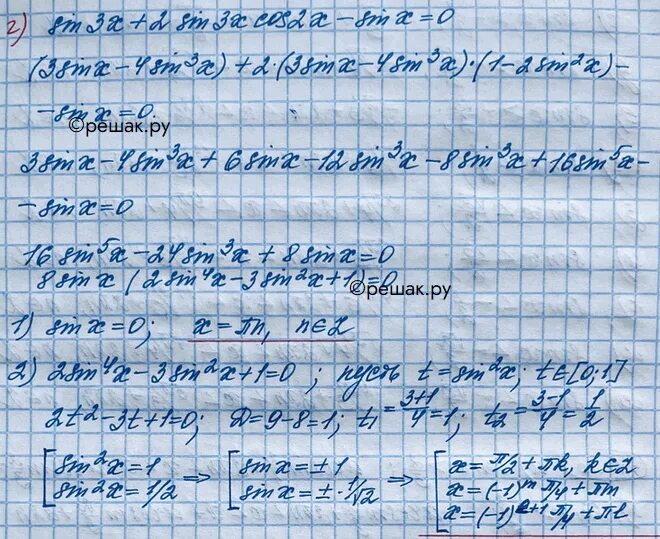 г) sin3x+2 sin3x cos2x-sinx=0
(3sinx-4sin³x)+2·(3sinx-4sin³x)·(1-2sin²x)-
-sinx=0.
©решак.ру
3sinx-4sin³x+6sinx-12sin³x-8sin³x+16sin⁵x-
-sinx=0
16sin⁵x-24sin³x+8sinx=0
8sinx(2sin⁴x-3sin²x+1)=0
©решак.ру
1) sinx=0; x=πn, n∈Z
2) 2sin⁴x-3sin²x+1=0; пусть t=sin²x; t∈[0;1]
2t²-3t+1=0; D=9-8=1; t₁=(3+1)/4=1; t₂=(3-1)/4=1/2
[sin²x=1 ⇒ [sinx=±1 ⇒ [x=π/2+πk, k∈Z
sin²x=1/2 sinx=±·1/√2 x=(-1)ᵐ π/4+πm
x=(-1)ˡ⁺¹ π/4+πl